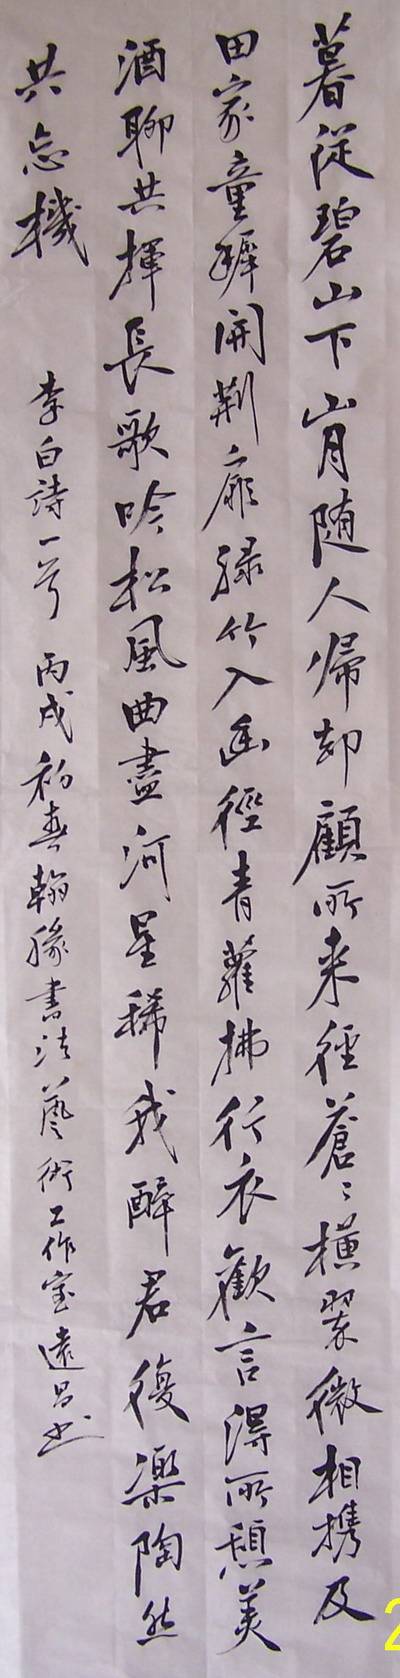 暮従碧山下山月随人帰却顧所来径蒼々横翠微相携及
田家童稚開荆扉緑竹入幽徑青蘿拂行衣歡言得所憩美
酒聊共揮長歌吟松風曲盡河星稀我醉君復樂陶然
共忘機
李白詩一首 丙戌初春翰緣書法藝術工作室遠昌書
2